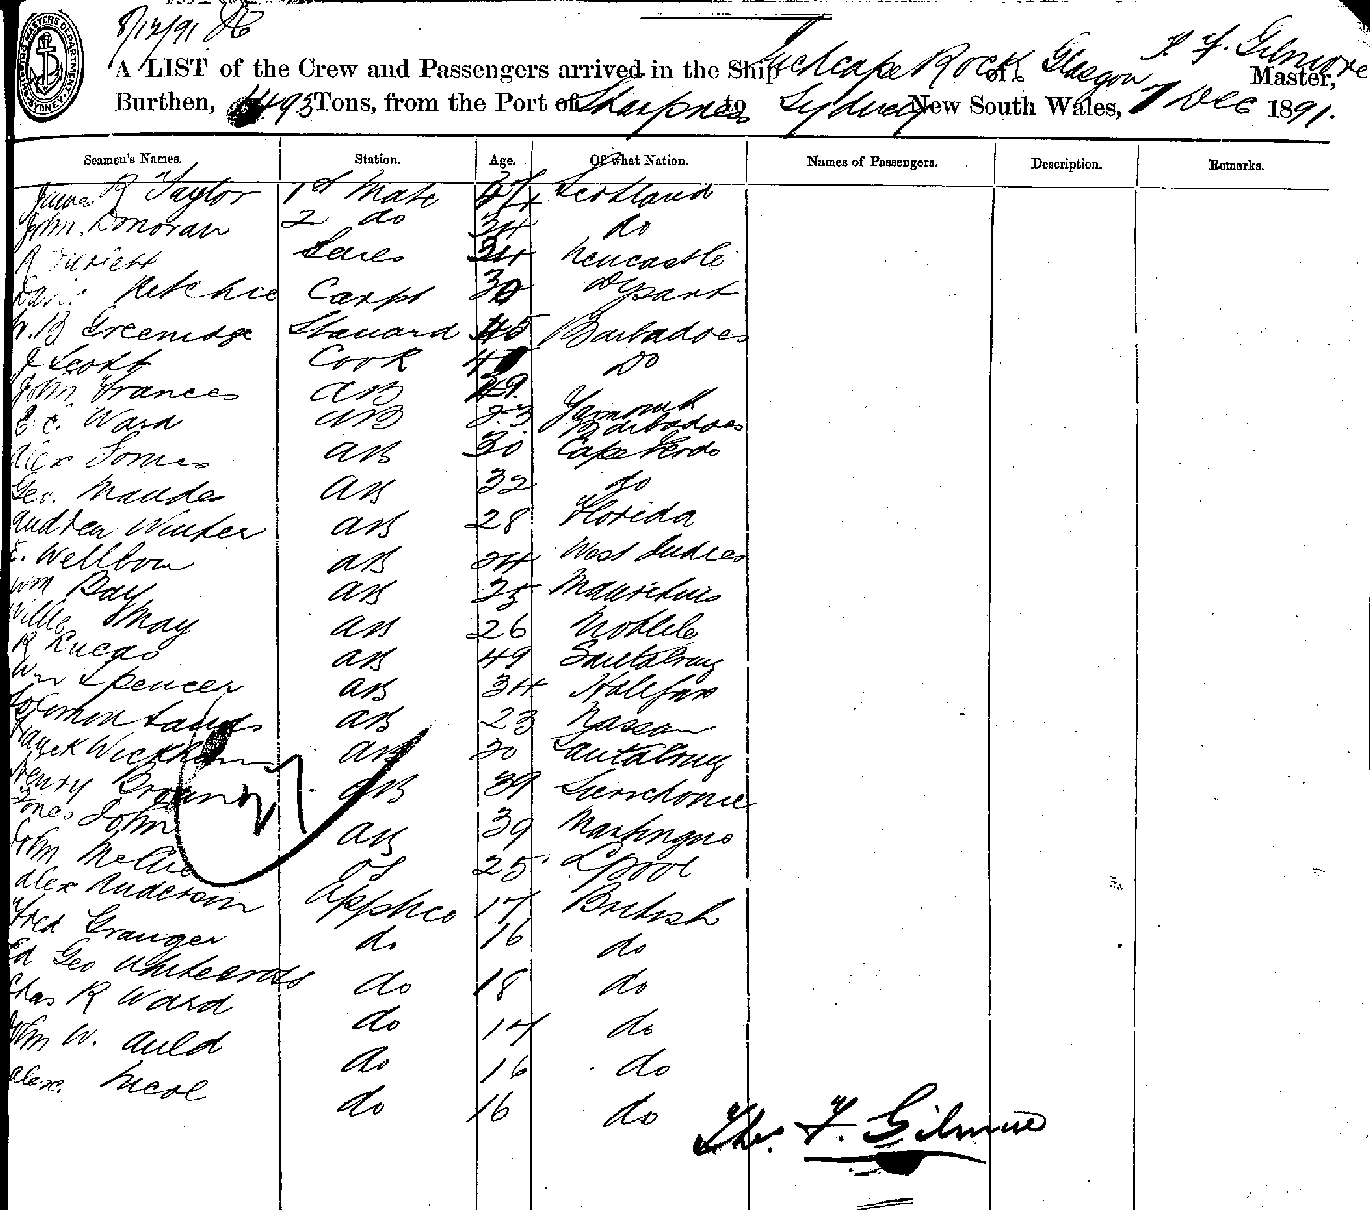 8/12/91
A LIST of the Crew and Passengers arrived in the Ship Inchcape Rock of Glasgow T F Gilmore Master,
Burthen, 1493 Tons, from the Port of Sharpness to Sydney New South Wales, 7 Dec 1891.
Seamen's Names. Station. Age. Of what Nation. Names of Passengers. Description. Remarks.
James R Taylor 1st Mate Scotland
John Donovan 2 do 34 do
Newcastle
David Ritchie Carpt 30 Dysart
W. B Greenidge Steward 45 Barbadoes
J Scott Cook do
John Frances AB 29 Yarmouth
E. C. Ward AB 23 Barbadoes
Alex Gomes AB 30 Cape Verde
Geo. Mandes AB 32 do
Andrew Winter AB 28 Florida
E. Wellbon AB 24 West Indies
Wm Bay AB 25 Mauretius
Willie May AB 26 Mobile
R Lucas AB 49 Santa Cruz
Wm Spencer AB 34 Halifax
Solomon Sands AB 23 Nassau
Wickham AB 30 Santa Cruz
Henry Brown AB 39
Jones John AB 39
John OS 25 Lpool
Alex Anderson Apptice 17 British
Fred Granger do 16 do
Ed Geo Whitecross do 18 do
Chas R Ward do 17 do
John W. Auld do 16 do
Alex. Nicol do 16 do
Tho. F. Gilmore